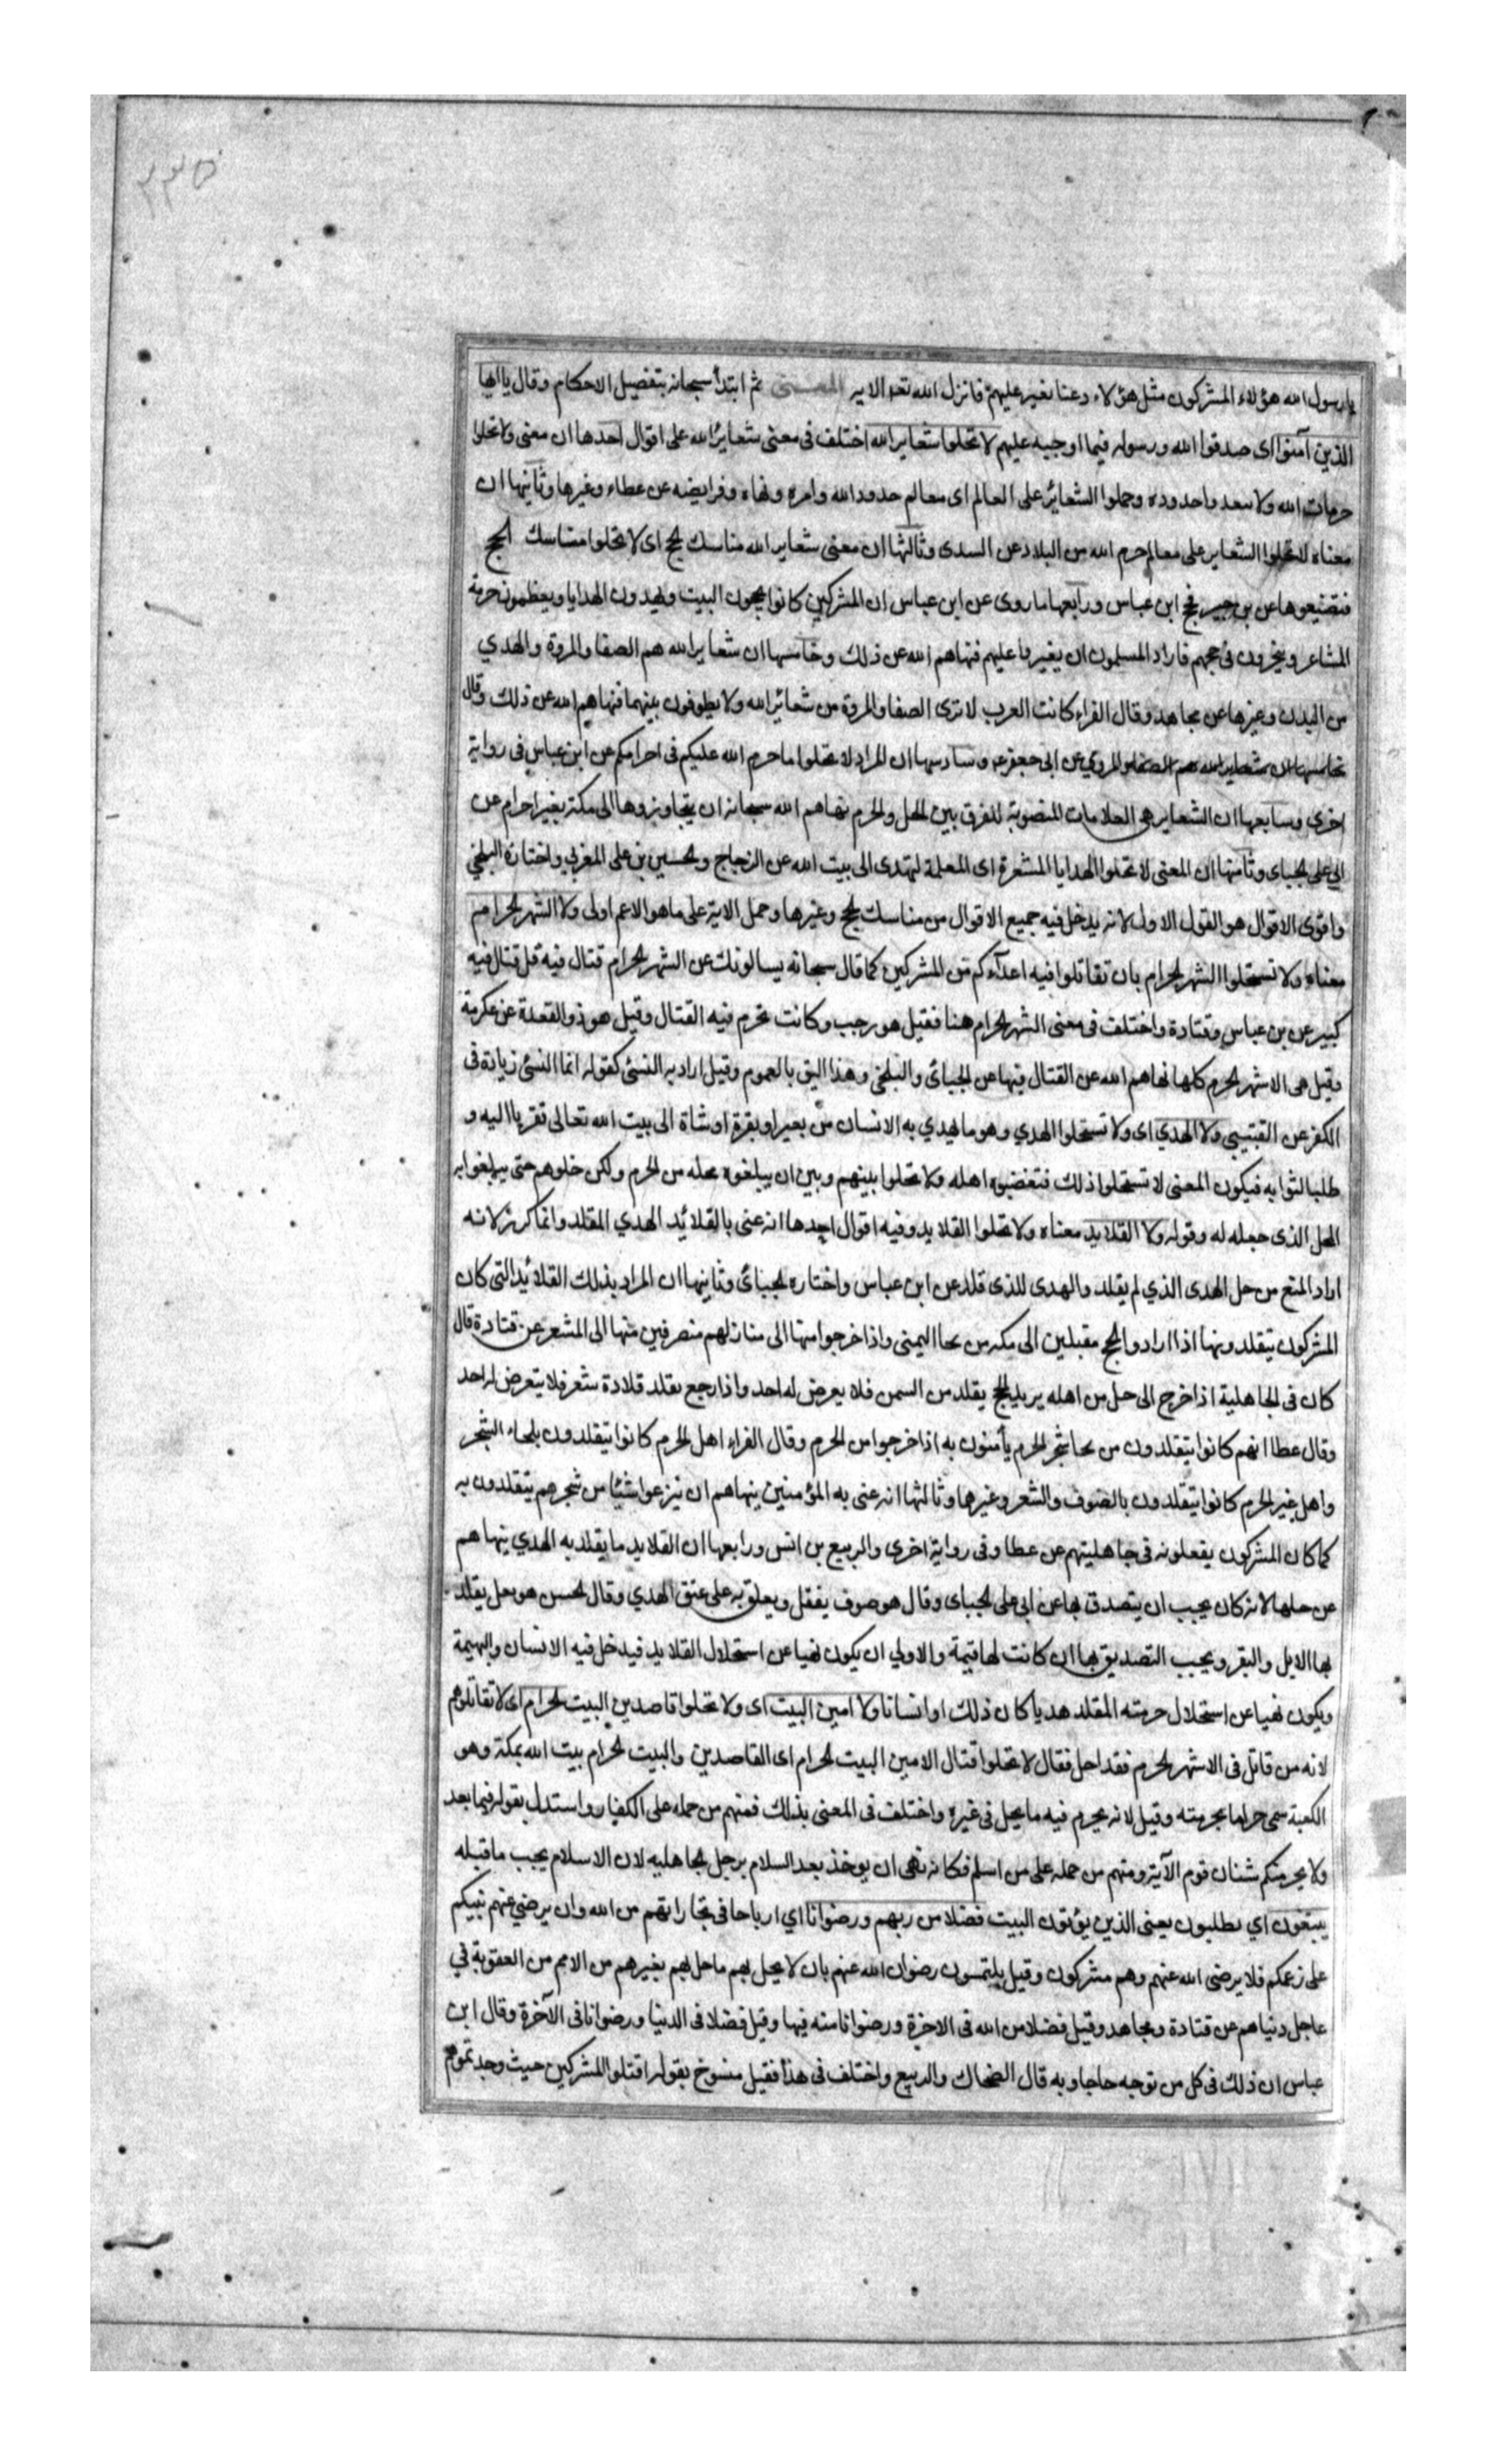 ٢٣٥
يا رسول الله هؤلاء المشركون مثل هؤلاء دعنا نغير عليهم فانزل الله تعو الايه المعنى ثم ابتدأ سبحانه بتفصيل الاحكام وقال يا ايها
الذين آمنوا اى صدقوا الله ورسوله فيما اوجبه عليهم لا تحلوا شعاير الله اختلف فى معنى شعائر الله على اقوال احدها ان معنى ولا تحلوا
حرمات الله ولا سعد واحدوده وحملوا الشعائر على العالم اى معالم حدود الله وامره ونهاه وفرايضه عن عطاء وغيرها وثانيها ان
معناه لا تحلوا الشعاير على معالم حرم الله من البلاد عن السدى وثالثها ان معنى شعاير الله مناسك الحج اى لا تحلوا مناسك الحج
فتضيعوها عن بن جبير ابن عباس ورابعها ما روى عن ابن عباس ان المشركين كانوا يحجون البيت ويهدون الهدايا ويعظمون حرمة
المشاعر وينحرون فى حجهم فاراد المسلمون ان يغيروا عليهم فنهاهم الله عن ذلك وخامسها ان شعاير الله هم الصفا والمروة والهدي
من البدن وغيرها عن مجاهد وقال الفراء كانت العرب لا ترى الصفا والمروة من شعائر الله ولا يطوفون بينهما فنهاهم الله عن ذلك وقال
خامسها ان شعاير الله هم الصفا والمروى عن ابى جعفر عه وسادسها ان المراد لا تحلوا ما حرم الله عليكم فى احرامكم عن ابن عباس فى رواية
اخرى وسابعها ان الشعاير هى العلامات المنصوبة للفرق بين الحل والحرم نهاهم الله سبحانه ان يتجاوزوها الى مكة بغير احرام عن
ابي على الجباى وثامنها ان المعنى لا تحلوا الهدايا المشعرة اى المعلمة لتهدى الى بيت الله عن الزجاج والحسين بن على المغربي واختاره البلخي
واقوى الاقوال هو القول الاول لانه يدخل فيه جميع الاقوال من مناسك الحج وغيرها وحمل الاية على ما هو الاعم اولى ولا الشهر الحرام
معناه ولا تستحلوا الشهر الحرام بان تقاتلوا فيه اعدآءكم من المشركين كما قال سبحانه يسالونك عن الشهر الحرام قتال فيه قل قتال فيه
كبير عن بن عباس وقتادة واختلف فى معنى الشهر الحرام هنا فقيل هو رجب وكانت تحرم فيه القتال وقيل هو ذو القعدة عن عكرمة
وقيل هى الاشهر الحرم كلها نهاهم الله عن القتال فيها عن الجبائ والبلخى وهذا اليق بالعموم وقيل اراد به النسئ كقوله انما النسئ زيادة فى
الكفر عن القتيبي ولا الهدي اى ولا تستحلوا الهدي وهو ما يهدي به الانسان من بعير او بقرة او شاة الى بيت الله تعالى تقربا اليه و
طلبا لثوابه فيكون المعنى لا تستحلوا ذلك فتغضبوه اهله ولا تحلوا بينهم وبين ان يبلغوه محله من الحرم ولكن خلوهم حتى يبلغوا به
المحل الذى جعله له وقوله ولا القلايد معناه ولا تحلوا القلايد وفيه اقوال احدها انه عنى بالقلائد الهدي المقلد وانما كرر لانه
اراد المنع من حل الهدى الذي لم يقلد والهدى للذى قلد عن ابن عباس واختاره الجبائ وثانيها ان المراد بذلك القلائد التى كان
المشركون يتقلدونها اذا ارادوا الحج مقبلين الى مكه من لحا اليمنى واذا خرجوا منها الى منازلهم منصرفين منها الى المشعر عن قتادة قال
كان فى الجاهلية اذا خرج الى حل من اهله يريد الحج يقلد من السمن فلا يعرض له احد واذا رجع يقلد قلادة شعر فلا يتعرض له احد
وقال عطا انهم كانوا يتقلدون من لحا شجر الحرم يأمنون به اذا خرجوا من الحرم وقال الفراء اهل الحرم كانوا يتقلدون بلحاء الشجر
واهل غير الحرم كانوا يتقلدون بالصوف والشعر وغيرها وثالثها انه عنى به المؤمنين ينهاهم ان ينزعوا شيئا من شجرهم يتقلدون به
كما كان المشركون يفعلونه فى جاهليتهم عن عطا وفى رواية اخرى والربيع بن انس ورابعها ان القلايد ما يقلد به الهدي ينهاهم
عن حلها لانه كان يجب ان يتصدق بها عن ابى على الجباى وقال هو صوف يفتل ويعلق به على عنق الهدي وقال الحسن هو نعل يقلد
بها الابل والبقر ويجب التصديق بها ان كانت لها قيمة والاولي ان يكون نهيا عن استحلال القلايد فيدخل فيه الانسان والبهيمة
ويكون نهيا عن استحلال حرمته المقلد هديا كان ذلك او انسانا ولا امين البيت اى ولا تحلوا قاصدين البيت الحرام اى لا تقاتلوهم
لانه من قاتل فى الاشهر الحرم فقد احل فقال لا تحلوا قتال الامين البيت الحرام اى القاصدين والبيت الحرام بيت الله بمكة وهو
الكعبة سمى حراما بحرمته وقيل لانه يحرم فيه ما يحل فى غيره واختلف فى المعنى بذلك فمنهم من حمله على الكفار واستدل بقوله فيما بعد
ولا يجرمنكم شنان قوم الآية ومنهم من حمله على من اسلم فكانه نهى ان يوخذ بعد السلام برجل الجاهليه لان الاسلام يجب ما قبله
يبتغون اي يطلبون يعنى الذين يؤتون البيت فضلا من ربهم ورضوانا اي ارباحا فى تجاراتهم من الله وان يرضي عنهم نبيكم
على زعمكم فلا يرضى الله عنهم وهم مشركون وقيل يلتمسون رضوان الله عنهم بان لا يحل بهم ما حل بهم بغيرهم من الامم من العقوبة في
عاجل دنياهم عن قتادة ومجاهد وقيل فضلا من الله فى الاخرة ورضوانا منه فيها وقيل فضلا فى الدنيا ورضوانا فى الآخرة وقال ابن
عباس ان ذلك فى كل من توجه حاجا وبه قال الضحاك والربيع واختلف فى هذا فقيل منسوخ بقوله اقتلوا المشركين حيث وجدتموهم